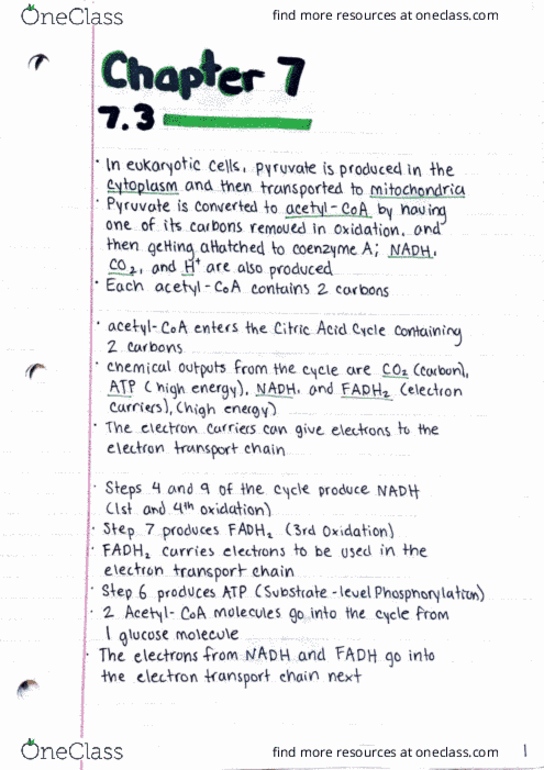 OneClass
find more resources at oneclass.com
Chapter 7
7.3
· In eukaryotic cells, pyruvate is produced in the
cytoplasm and then transported to mitochondria
· Pyruvate is converted to acetyl-CoA by having
one of its carbons removed in oxidation, and
then getting attatched to coenzyme A; NADH,
CO₂, and H⁺ are also produced
· Each acetyl-CoA contains 2 carbons
· acetyl-CoA enters the Citric Acid Cycle containing
2 carbons
· chemical outputs from the cycle are CO₂ (carbon),
ATP (high energy), NADH, and FADH₂ (electron
carriers), (high energy)
· The electron carriers can give electrons to the
electron transport chain
· Steps 4 and 9 of the cycle produce NADH
(1st and 4th oxidation)
· Step 7 produces FADH₂ (3rd Oxidation)
· FADH₂ carries electrons to be used in the
electron transport chain
· Step 6 produces ATP (Substrate-level Phosphorylation)
· 2 Acetyl-CoA molecules go into the cycle from
1 glucose molecule
· The electrons from NADH and FADH go into
the electron transport chain next
OneClass
find more resources at oneclass.com
1